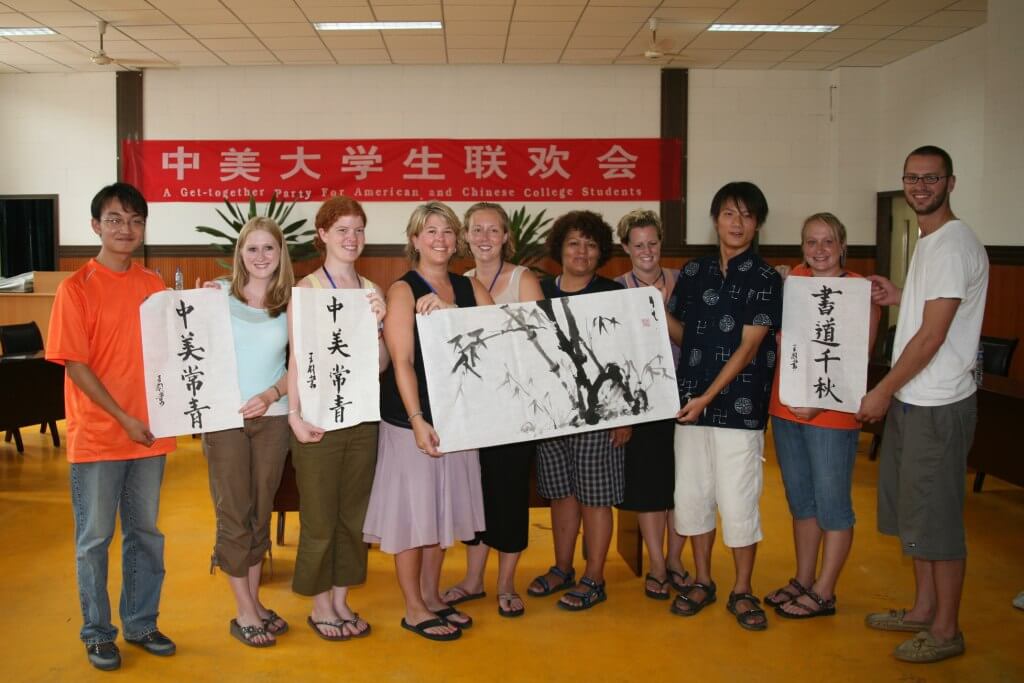 中美大学生联欢会
A Get-together Party For American and Chinese College Students
中美常青
中美常青
書道千秋